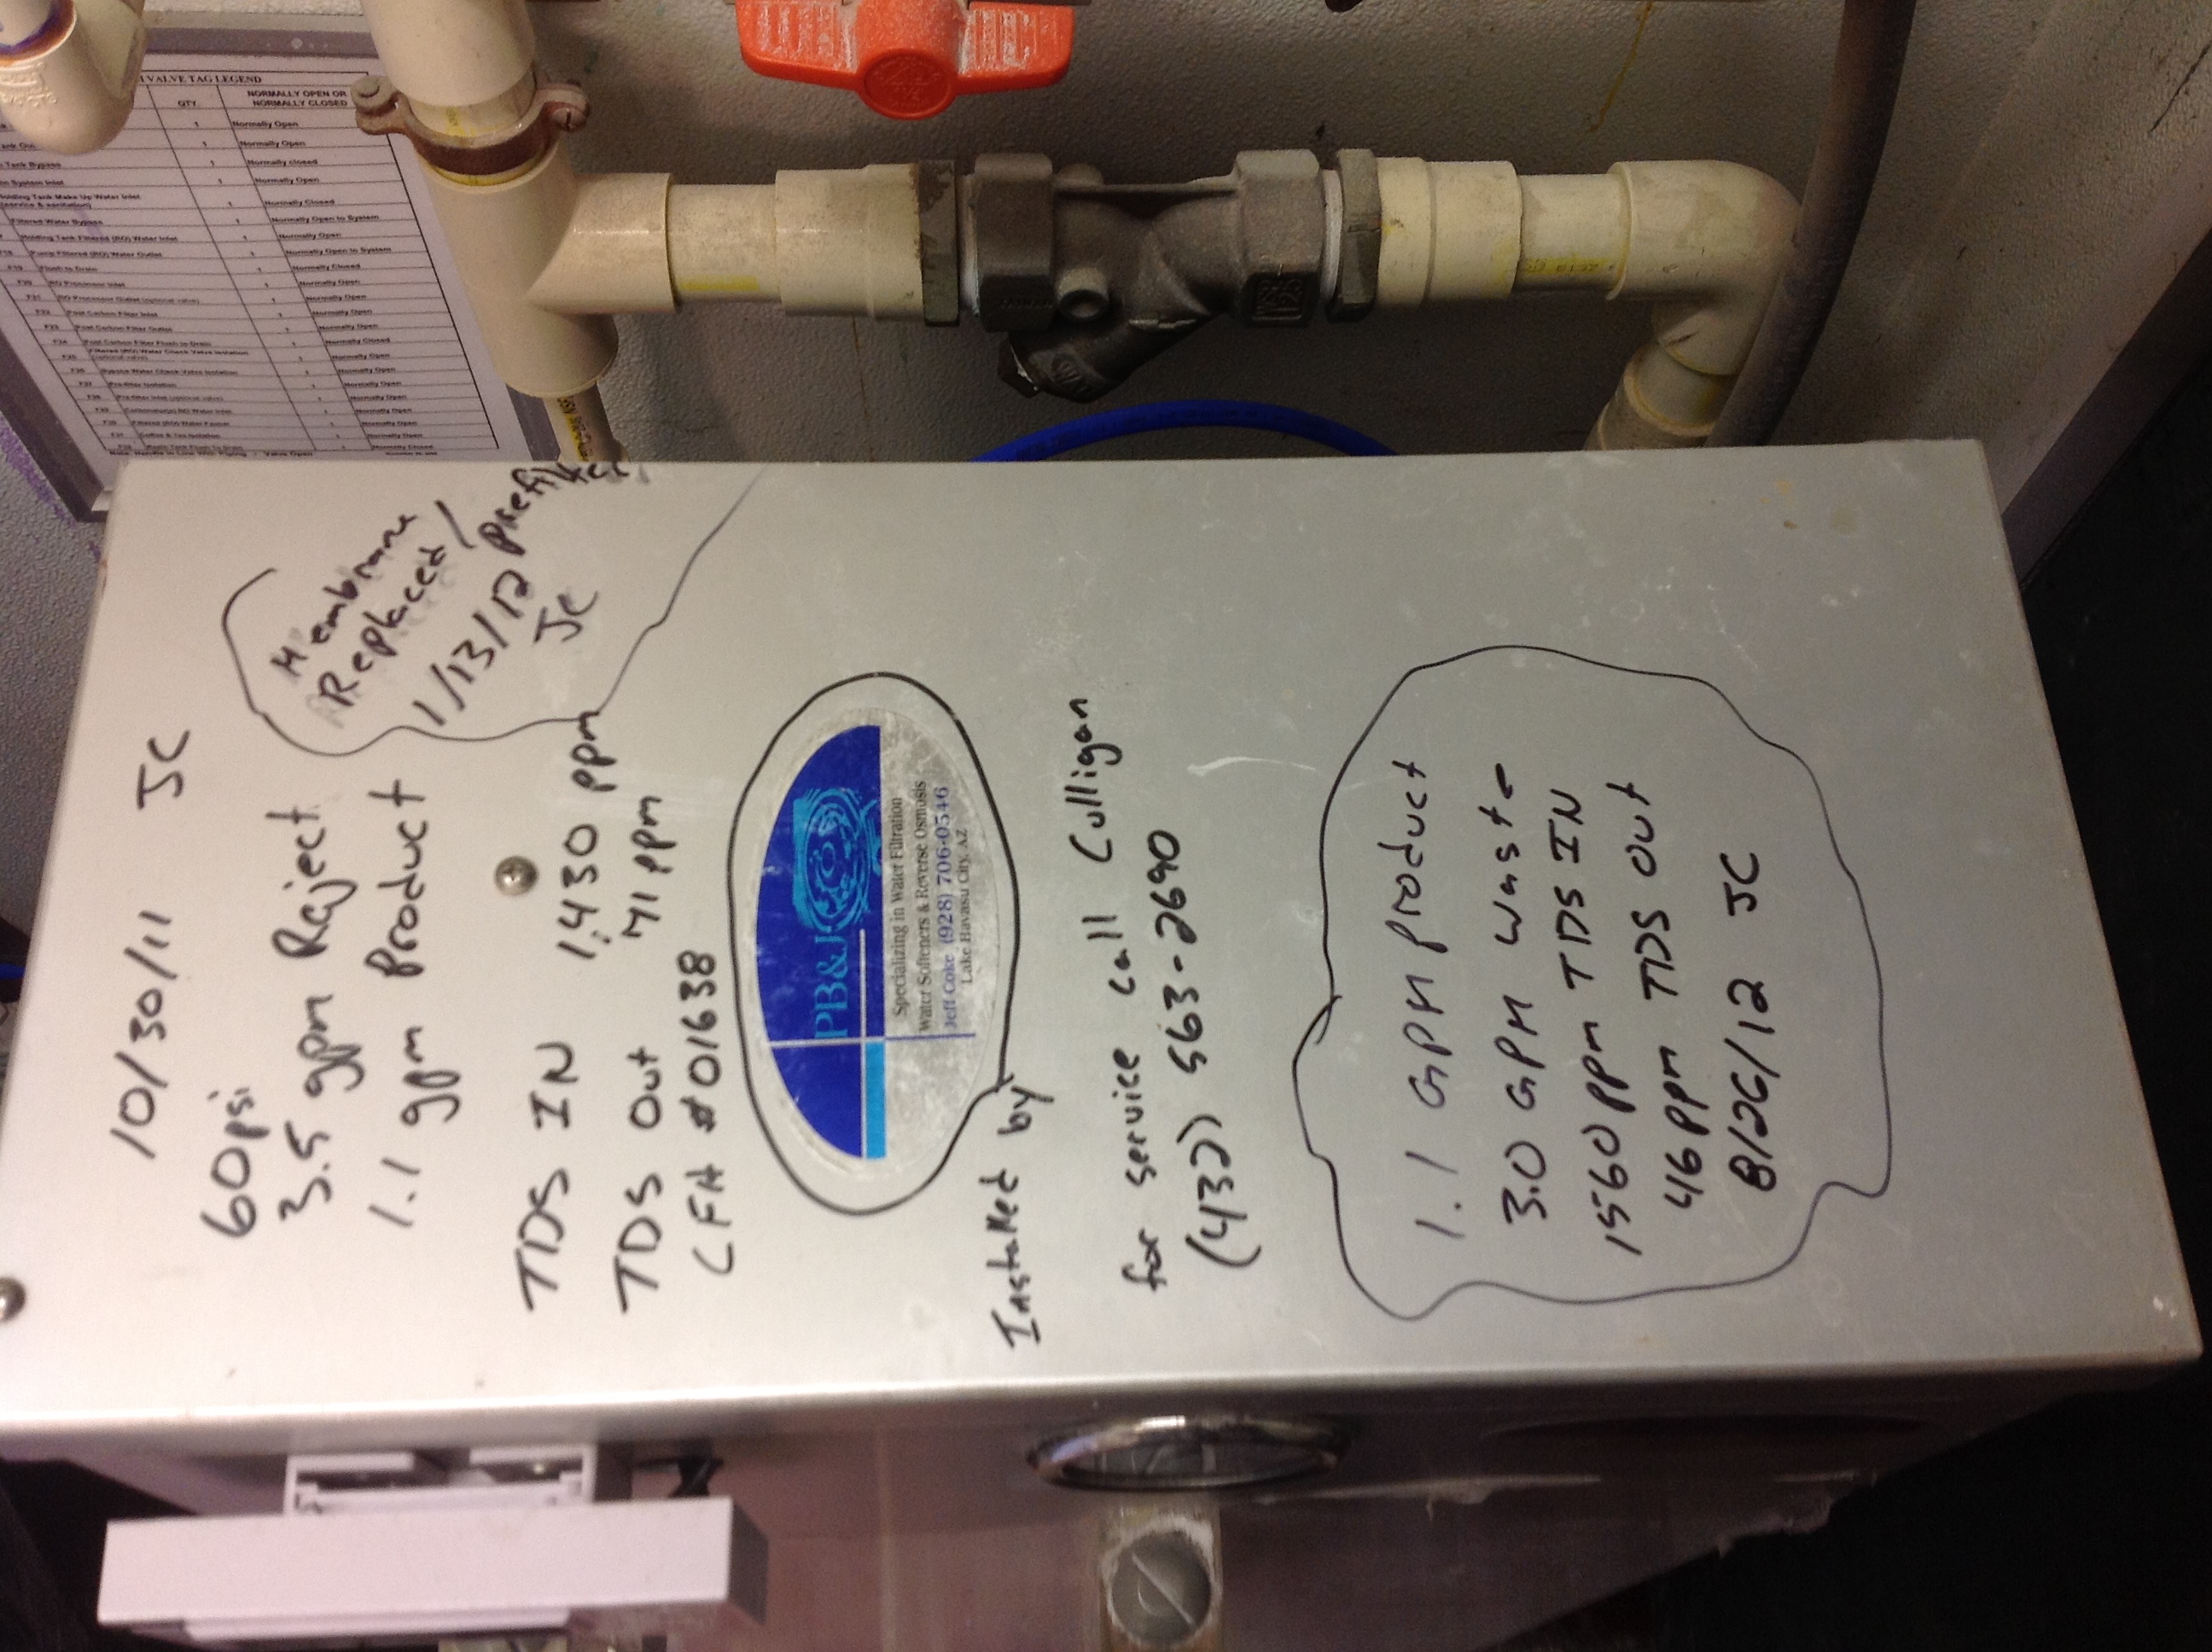 VALVE TAG LEGEND
QTY. NORMALLY OPEN OR NORMALLY CLOSED
1 Normally Open
1 Normally Open
Tank Bypass 1 Normally closed
System Inlet 1 Normally Open
Holding Tank Make Up Water Inlet (service & sanitation) 1 Normally Closed
Filtered Water Bypass 1 Normally Open to System
Holding Tank Filtered (RO) Water Inlet 1 Normally Open
Pump Filtered (RO) Water Outlet 1 Normally Open to System
F19 Flush to Drain 1 Normally Closed
F20 RO Processor Inlet 1 Normally Open
F21 RO Processor Outlet (optional valve) 1 Normally Open
F22 Post Carbon Filter Inlet 1 Normally Open
F23 Post Carbon Filter Outlet 1 Normally Open
F24 Post Carbon Filter Flush to Drain 1 Normally Closed
F25 Filtered (RO) Water Check Valve Isolation (optional valve) 1 Normally Open
F26 Bypass Water Check Valve Isolation 1 Normally Open
F27 Pre-filter Isolation 1 Normally Open
F28 Pre-filter Inlet (optional valve) 1 Normally Open
Water Inlet 1 Normally Open
Filtered (RO) Water 1 Normally Open
F31 Coffee & Tea Isolation 1 Normally Open
1 Normally Closed
Note: Handle in Line With Piping / Valve Open
10/30/11 JC
60psi
3.5 gpm Reject
1.1 gpm Product
Membrane
Replaced/
1/13/12 prefilter
JC
TDS IN 1,430 ppm
TDS Out 41 ppm
CFH # 01638
PB&J
Specializing in Water Filtration
Water Softeners & Reverse Osmosis
Jeff Coke (928) 706-0546
Lake Havasu City, AZ
Installed by
for service call Culligan
(432) 563-2690
1.1 GPM product
3.0 GPM waste
1560 ppm TDS IN
46 ppm TDS Out
8/26/12 JC